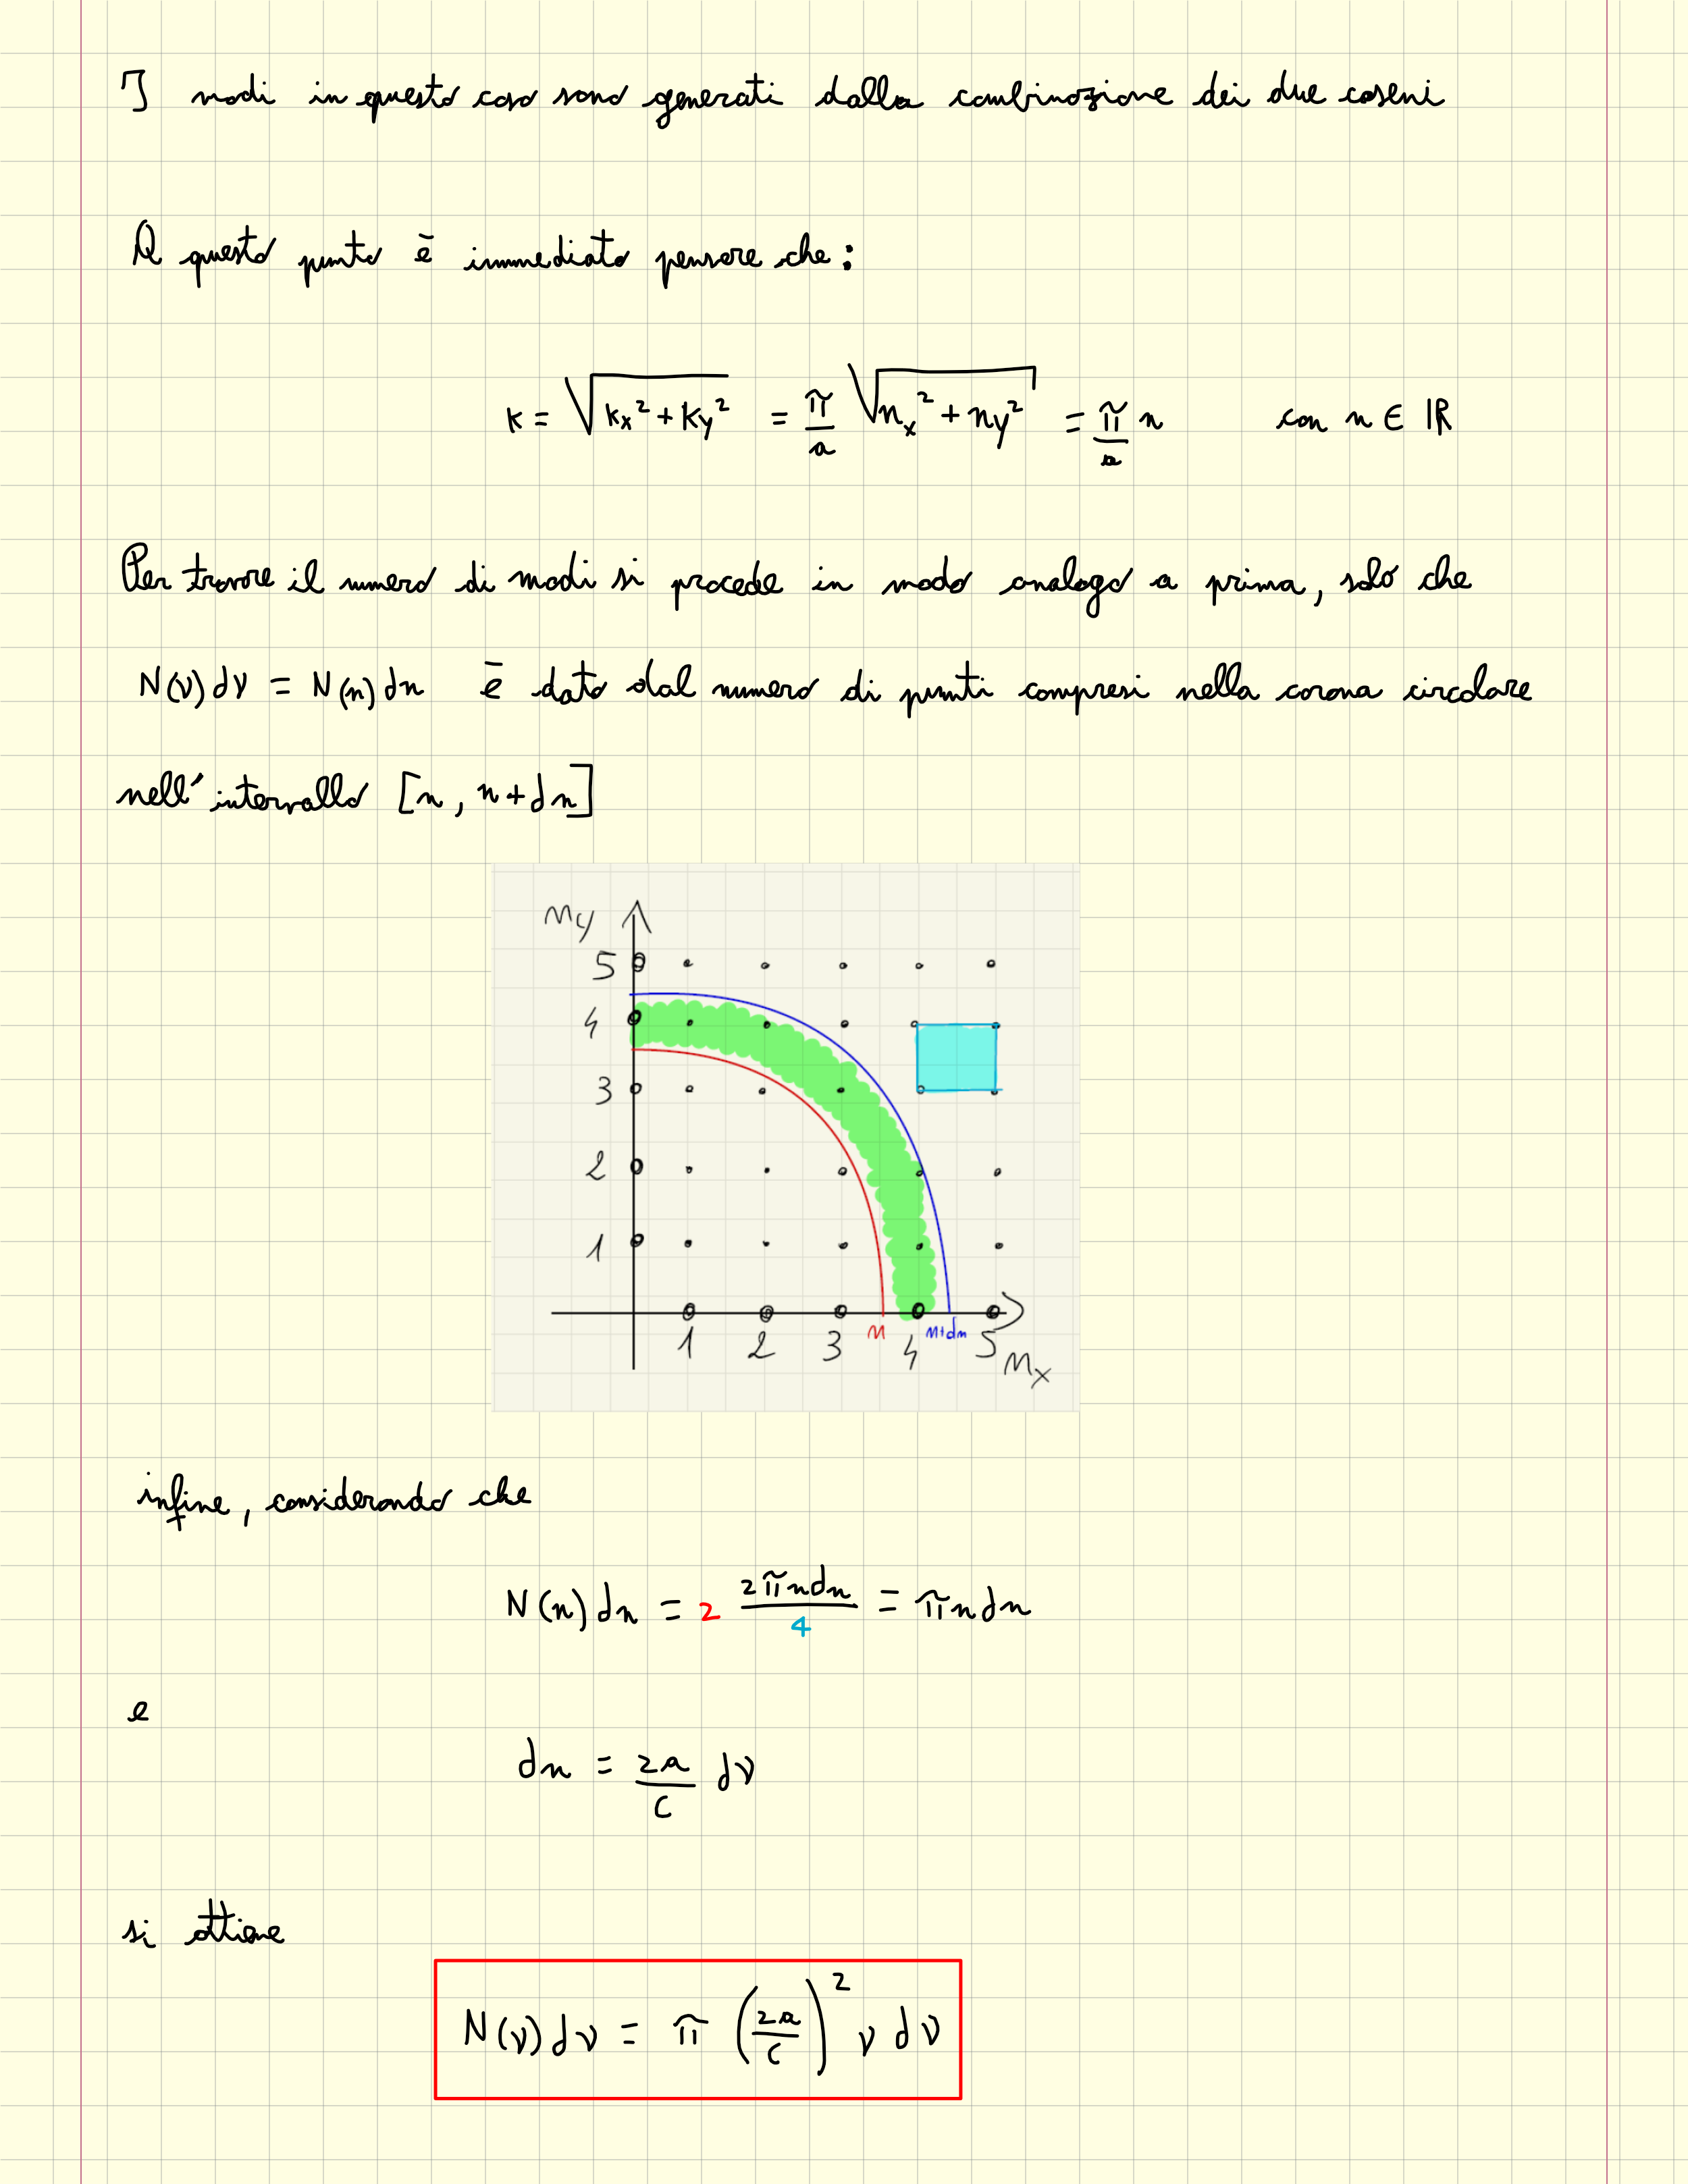 I modi in questo caso sono generati dalla combinazione dei due coseni
A questo punto ē immediato pensare che:
k = √(kx² + ky²) = π/a √(nx² + ny²) = π/a n con n ∈ ℝ
Per trovare il numero di modi si procede in modo analogo a prima, solo che
N(ν)dν = N(n)dn ē dato dal numero di punti compresi nella corona circolare
nell'intervallo [n, n+dn]
ny
5
4
3
2
1
n n+dn
1 2 3 4 5
nx
infine, considerando che
N(n)dn = 2 2πndn/4 = πndn
e
dn = 2a/c dν
si ottiene
N(ν)dν = π (2a/c)² ν dν